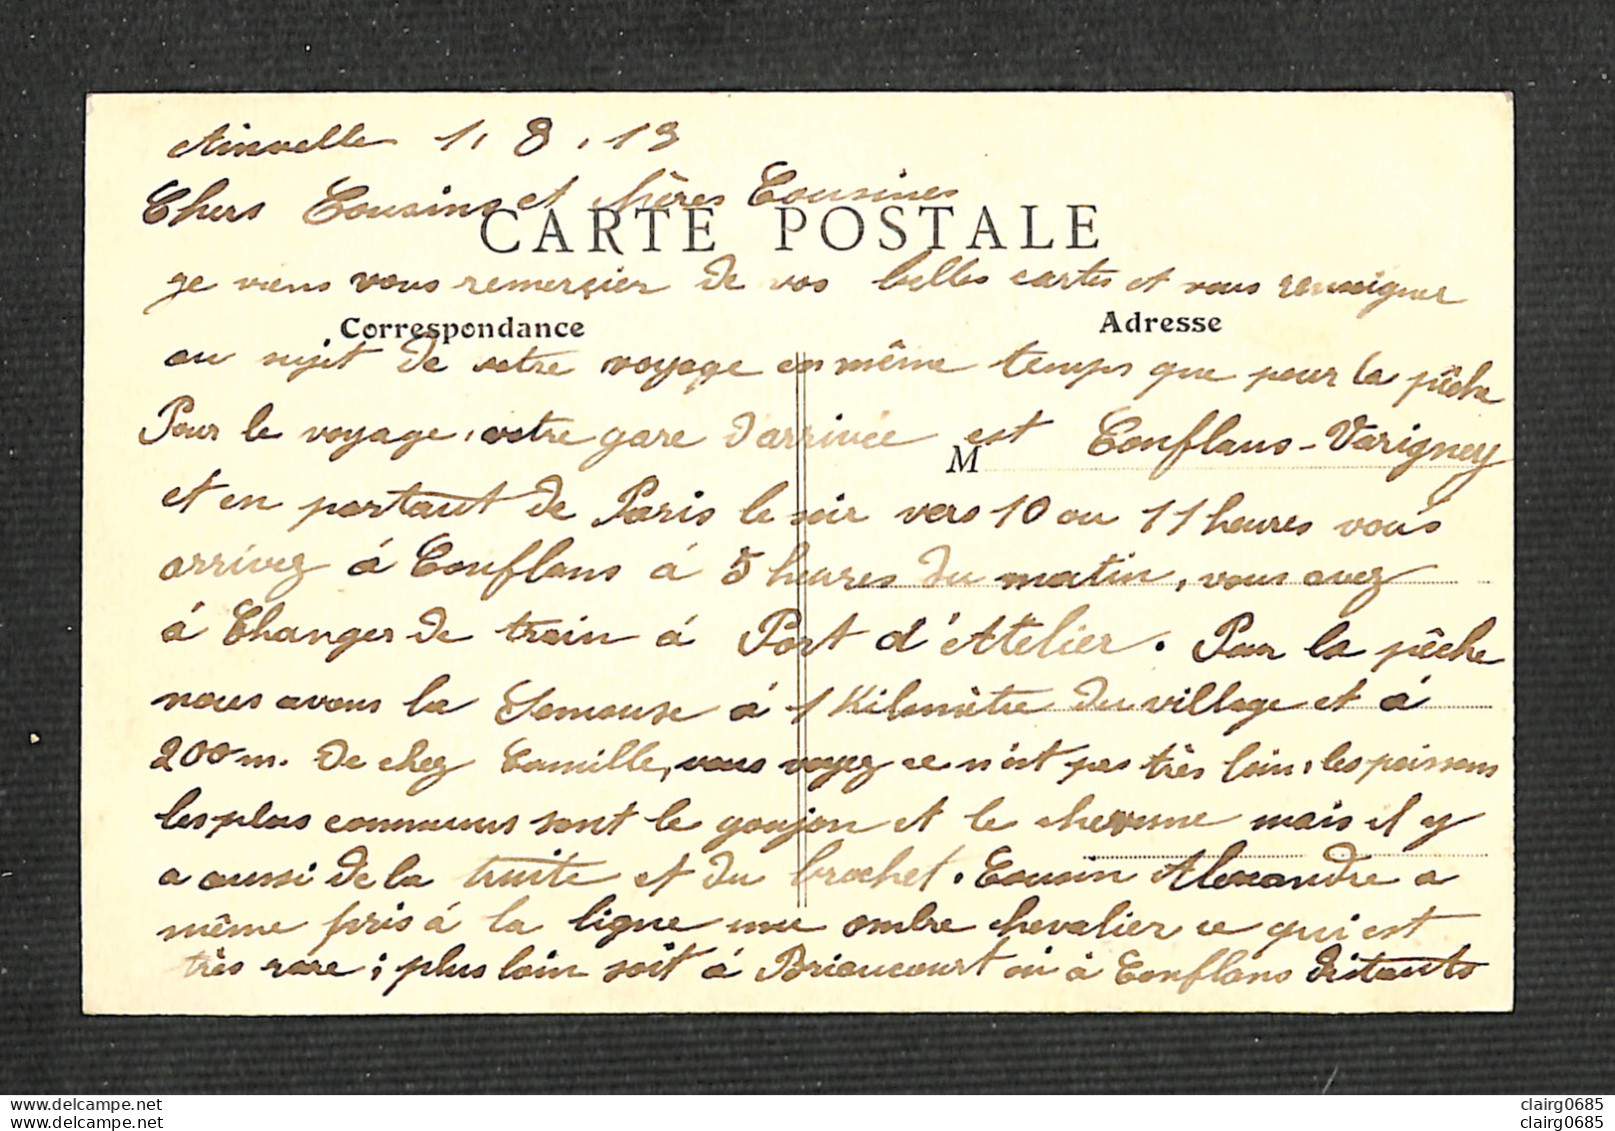 Ainvelle 1. 8. 13
Chers Cousins et Chères Cousines
CARTE POSTALE
je viens vous remerçier de vos belles cartes et vous renseigner
Correspondance
Adresse
au sujet de votre voyage en même temps que pour la pêche
Pour le voyage, votre gare d'arrivée est Conflans-Varigney
M
et en partant de Paris le soir vers 10 ou 11 heures vous
arrivez à Conflans à 5 heures du matin, vous avez
à Changer de train à Port d'Atelier. Pour la pêche
nous avons la Semouse à 1 Kilomètre du village et à
200 m. de chez Camille, vous voyez ce n'est pas très loin, les poissons
les plus communs sont le goujon et le chevenne mais il y
a aussi de la truite et du brochet. Cousin Alexandre a
même pris à la ligne une ombre chevalier ce qui est
très rare; plus loin soit à Briaucourt ou à Conflans distants
clairg0685
clairg0685
clairg0685
clairg0685